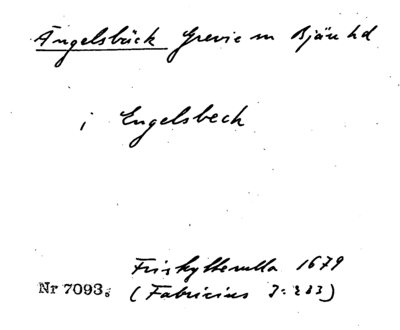 Ängelsbäck Grevie sn Bjäre hd
i Engelsbeck
Friskytterulla 1679
Nr 7093. (Fabricius I: 283)